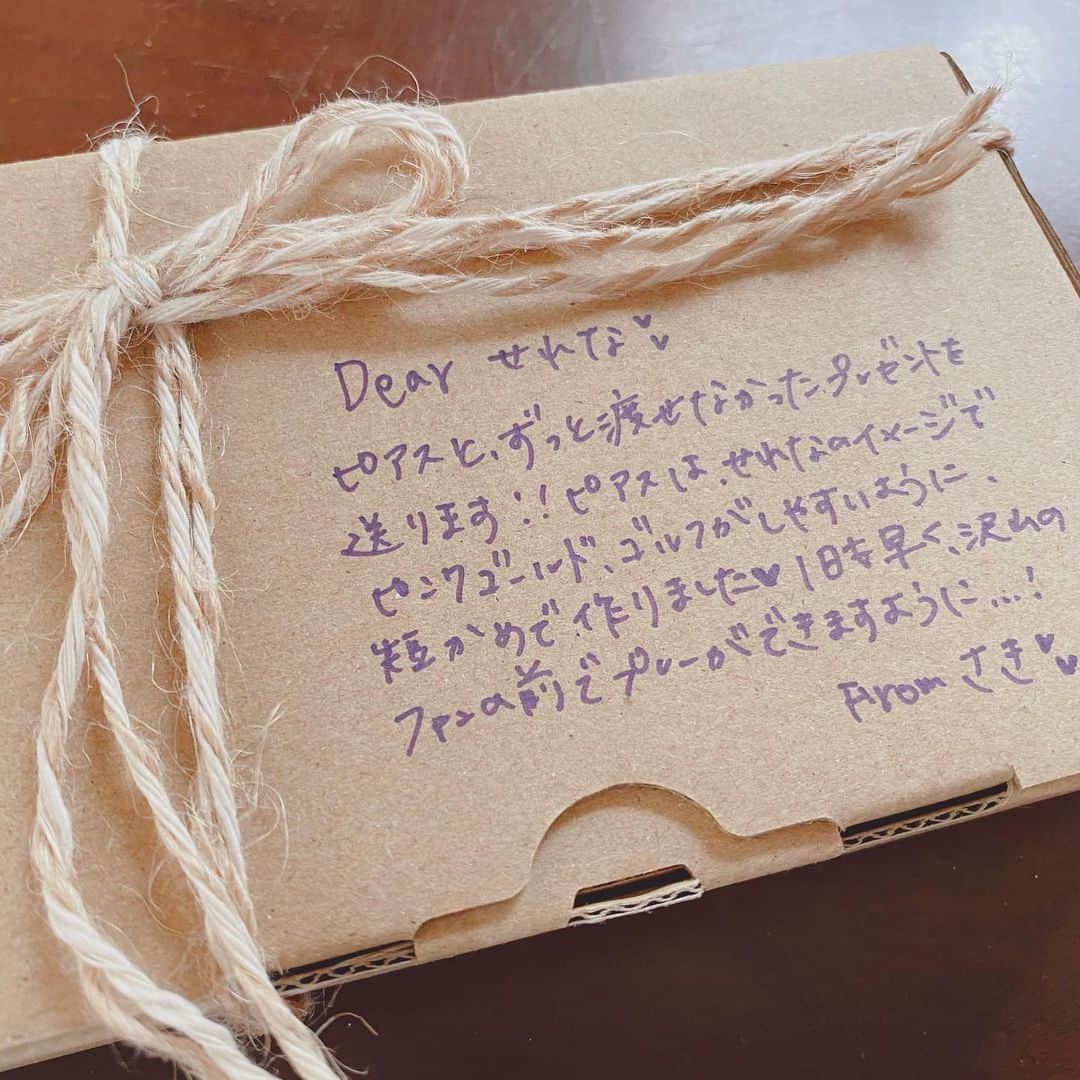 Dear せれな
ピアスと、ずっと渡せなかったプレゼントを
送ります!! ピアスは、せれなのイメージで
ピンクゴールド、ゴルフがしやすいように、
短かめで作りました♥ 1日も早く、沢山の
ファンの前でプレーができますように...!
From さき